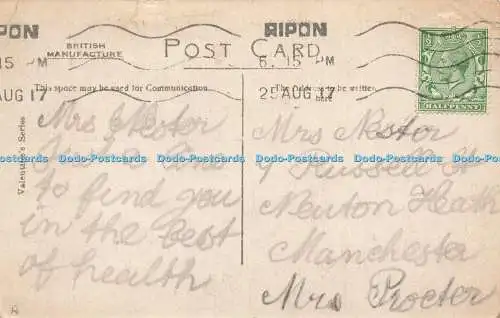 RIPON
RIPON
BRITISH MANUFACTURE
POST CARD
15 M
AUG 17
6. 15 PM
25 AUG 17
HALFPENNY
This space may be used for Communication.
The Address to be written here
Valentine's Series
Mrs Nestor
Just a line
to find you
in the best
of health
Mrs Nestor
9 Russell St
Newton Heath
Manchester
Mrs Procter
www.Udo-Postcards.com